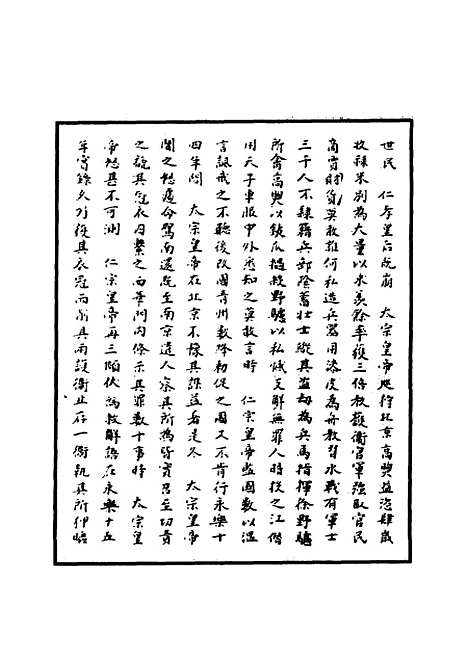 世民　仁孝皇后既崩　太宗皇帝巡狩北京高煦益恣肆歲
收祿米別為大量以求羨餘率獲三倍教護衛官軍強取官民
商賈財貨莫敢誰何私造兵器用漆皮為舟教習水戰有軍士
三千人不隸籍兵部陰蓄壯士縱其盗劫為兵馬指揮徐野驢
所禽高煦以鐵瓜撾殺野驢以私憾支解無罪人時投之江僭
用天子車服中外悉知之莫敢言時　仁宗皇帝監國數以溫
言誡戒之不聽後改國青州數降勅促之國又不肯行永樂十
四年間　太宗皇帝在北京不懌其謀益着是冬　太宗皇帝
聞之怒遽命駕南還既至南京遣人察其所為皆實召至切責
之褫其冠衣囚繫之西華門內條示其罪數十事時　太宗皇
帝怒甚不可測　仁宗皇帝再三頓伏為救解語在永樂十五
年實錄久乃復其衣冠而削其兩護衛止存一衛執其所仰嬉